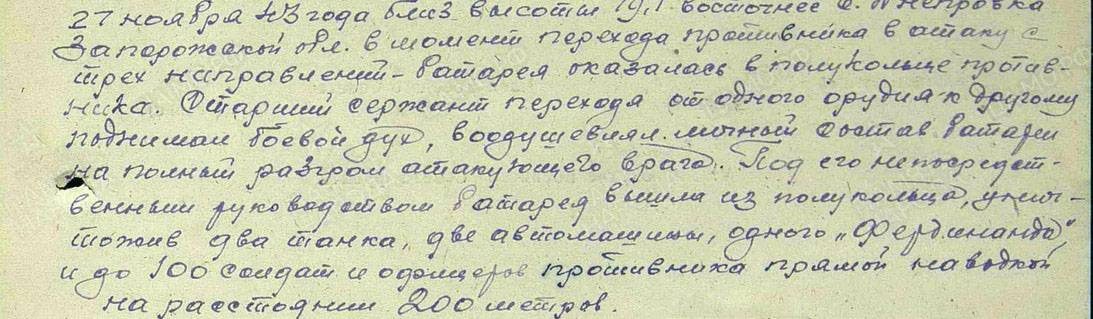 27 ноября 43 года близ высоты 79,1 восточнее с. Днепровка
Запорожской обл. в момент перехода противника в атаку с
трех направлений - батарея оказалась в полукольце против-
ника. Старший сержант переходя от одного орудия к другому
поднимал боевой дух, воодушевлял личный состав батареи
на полный разгром атакующего врага. Под его непосредст-
венным руководством батарея вышла из полукольца, унич-
тожив два танка, две автомашины, одного „Фердинанда",
и до 100 солдат и офицеров противника прямой наводкой
на расстоянии 200 метров.